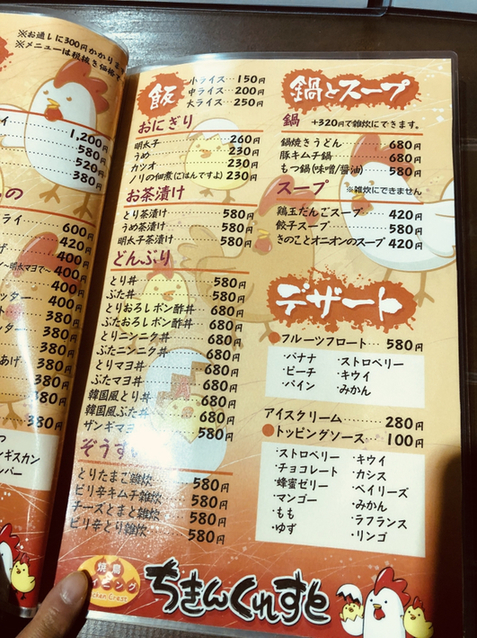 ※お通しに300円かかりま
※メニューは税抜き価格で
1,200円
580円
520円
380円
ライ 600円
420円
400円
〜明太マヨで〜 400円
400円
ッター 400円
380円
ター 380円
380円
あげ 380円
380円
380円
ギスカン
飯
小ライス…150円
中ライス…200円
大ライス…250円
おにぎり
明太子 260円
うめ 230円
カツオ 230円
ノリの佃煮(ごはんですよ) 230円
お茶漬け
とり茶漬け 580円
うめ茶漬け 580円
明太子茶漬け 580円
どんぶり
とり丼 580円
ぶた丼 580円
とりおろしポン酢丼 680円
ぶたおろしポン酢丼 680円
とりニンニク丼 680円
ぶたニンニク丼 680円
とりマヨ丼 680円
ぶたマヨ丼 680円
韓国風とり丼 680円
韓国風ぶた丼 680円
ザンギマヨ 580円
ぞうす
とりたまご雑炊 580円
ピリ辛キムチ雑炊 580円
チーズとまと雑炊 580円
ピリ辛とり雑炊 580円
鍋とスープ
鍋 +320円で雑炊にできます。
鍋焼きうどん 680円
豚キムチ鍋 680円
もつ鍋(味噌/醤油) 580円
スープ ※雑炊にできません
鶏玉だんごスープ 420円
餃子スープ 580円
きのことオニオンのスープ 420円
デザート
●フルーツフロート…580円
・バナナ ・ストロベリー
・ピーチ ・キウイ
・パイン ・みかん
アイスクリーム 280円
●トッピングソース…100円
・ストロベリー ・キウイ
・チョコレート ・カシス
・蜂蜜ゼリー ・ベイリーズ
・マンゴー ・みかん
・もも ・ラフランス
・ゆず ・リンゴ
焼鳥
ちきんくれすと